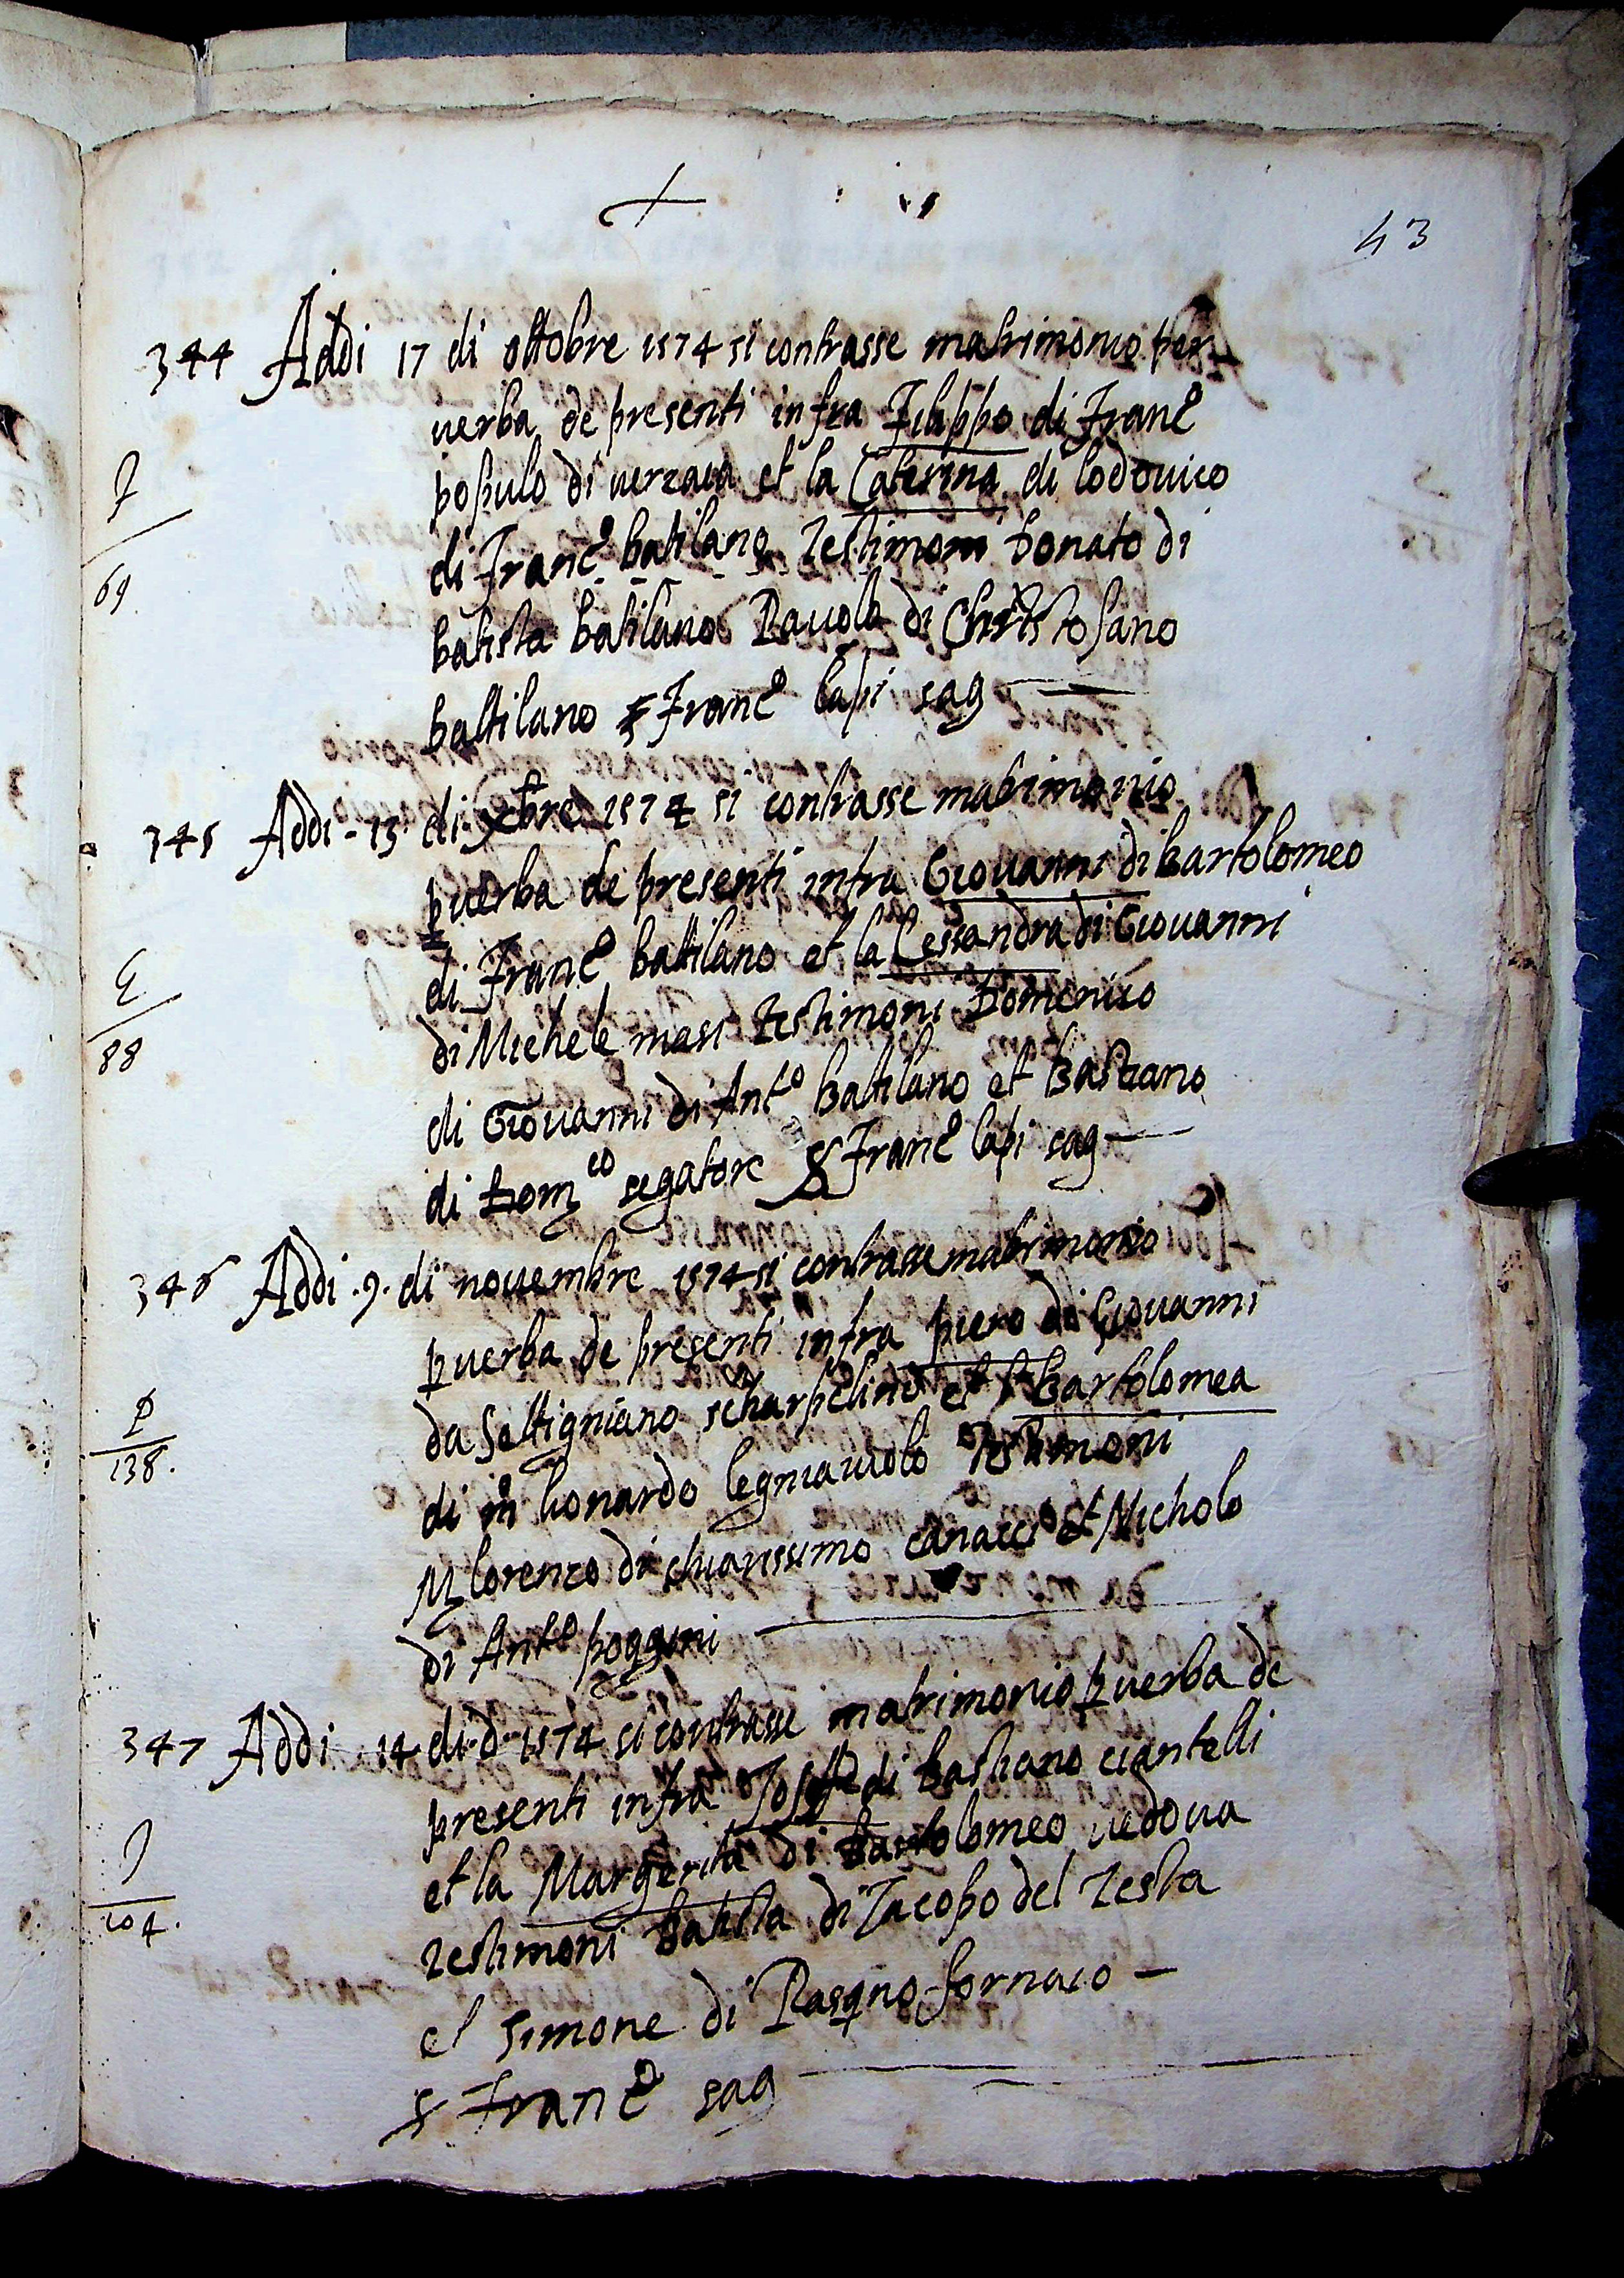 43
344 Addi 17 di ottobre 1574 si contrasse matrimonio per
verba de presenti infra Filippo di Franc.o
populo di et la Caterina di lodovico
F
69
di Franc.o batilano Testimoni Donato di
batista batilano Pavolo di Christofano
battilano Franc.o lapi sag
345 Addi - 15 di 1574 si contrasse matrimonio
p verba de presenti infra Giovanni di Bartolomeo
di Franc.o battilano et la Lessandra di Giovanni
G
88
di Michele masi Testimoni Domenico
di Giovanni di Ant.o Batilano et Bastiano
di Dom.co segatore S Franc.o lapi sag
346 Addi .9. di novembre 1574 si contrasse matrimonio
p verba de presenti infra piero di Giovanni
da Settigniano scharpelino et la Bartolomea
P
138.
di m.o lionardo legniaivolo Testimoni
M lorenzo di chiarissimo canacci et Nicholo
di Ant.o poggini
347 Addi 14 di d.o 1574 si contrasse matrimonio p verba de
presenti infra di bastiano ciantelli
et la Margerita di Bartolomeo vedova
J
104.
Testimoni Batista di Jacopo del Testa
et simone di Pasqno fornaio
S Franc.o sag